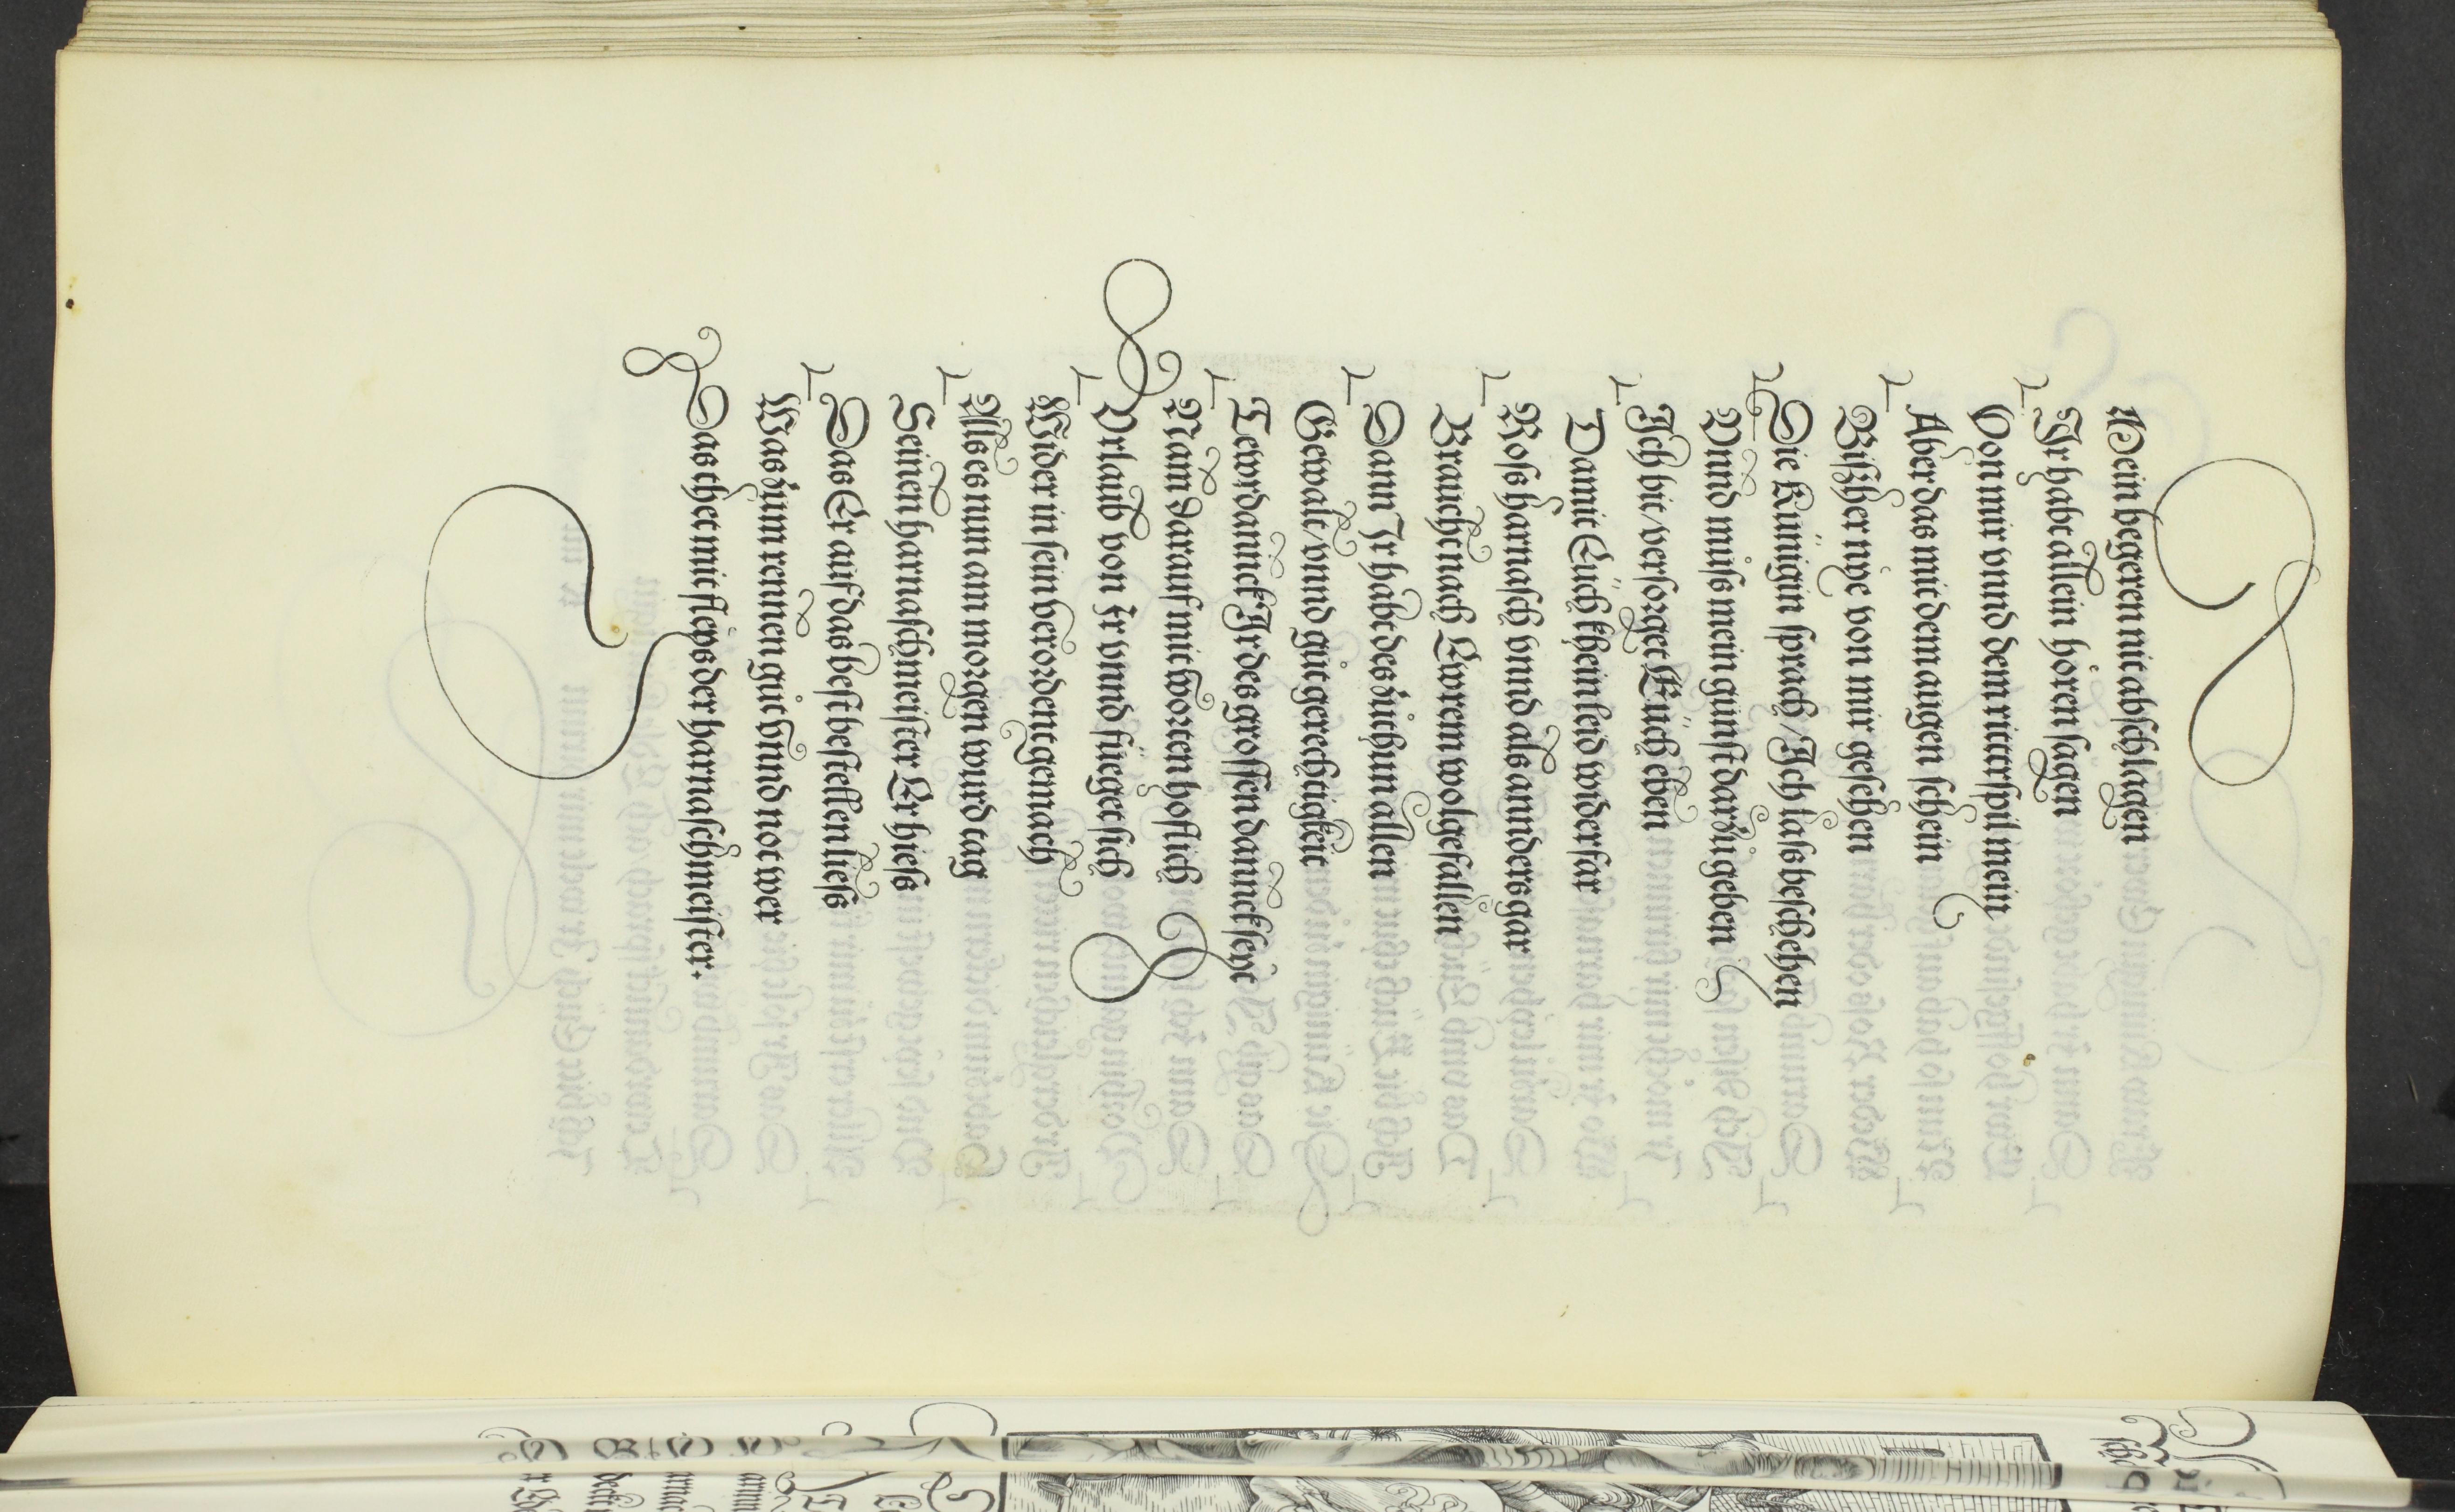 Mein begeren nit abschlagen
Ir habt allein hören sagen
Von mir vnnd dem ritterspil mein
Aber das mit dem augen schein
Bißher nye von mir gesehen
Die Künigin sprach / Ich lass beschehen
Vnnd müss mein gunst darzů geben
Ich bit / versorget Euch eben
Damit Euch khein leid widerfar
Ross harnasch vnnd als annders gar
Braucht nach Ewrem wolgefallen
Dann Ir habt des zůthun allen
Gewalt / vnnd gůt gerechtigkeit
Tewrdannck Ir des grossen dannck seyt
Nam darauf mit worten hoflich
Vrlaub von Ir vnnd füeget sich
Wider in sein verordent gemach
Als es nun am morgen wurd tag
Seinen harnaschmeister Er hiess
Das Er auf das best bestellen liess
Was zům rennen gůt vnnd not wer
Das thet mit fleys der harnaschmeister.